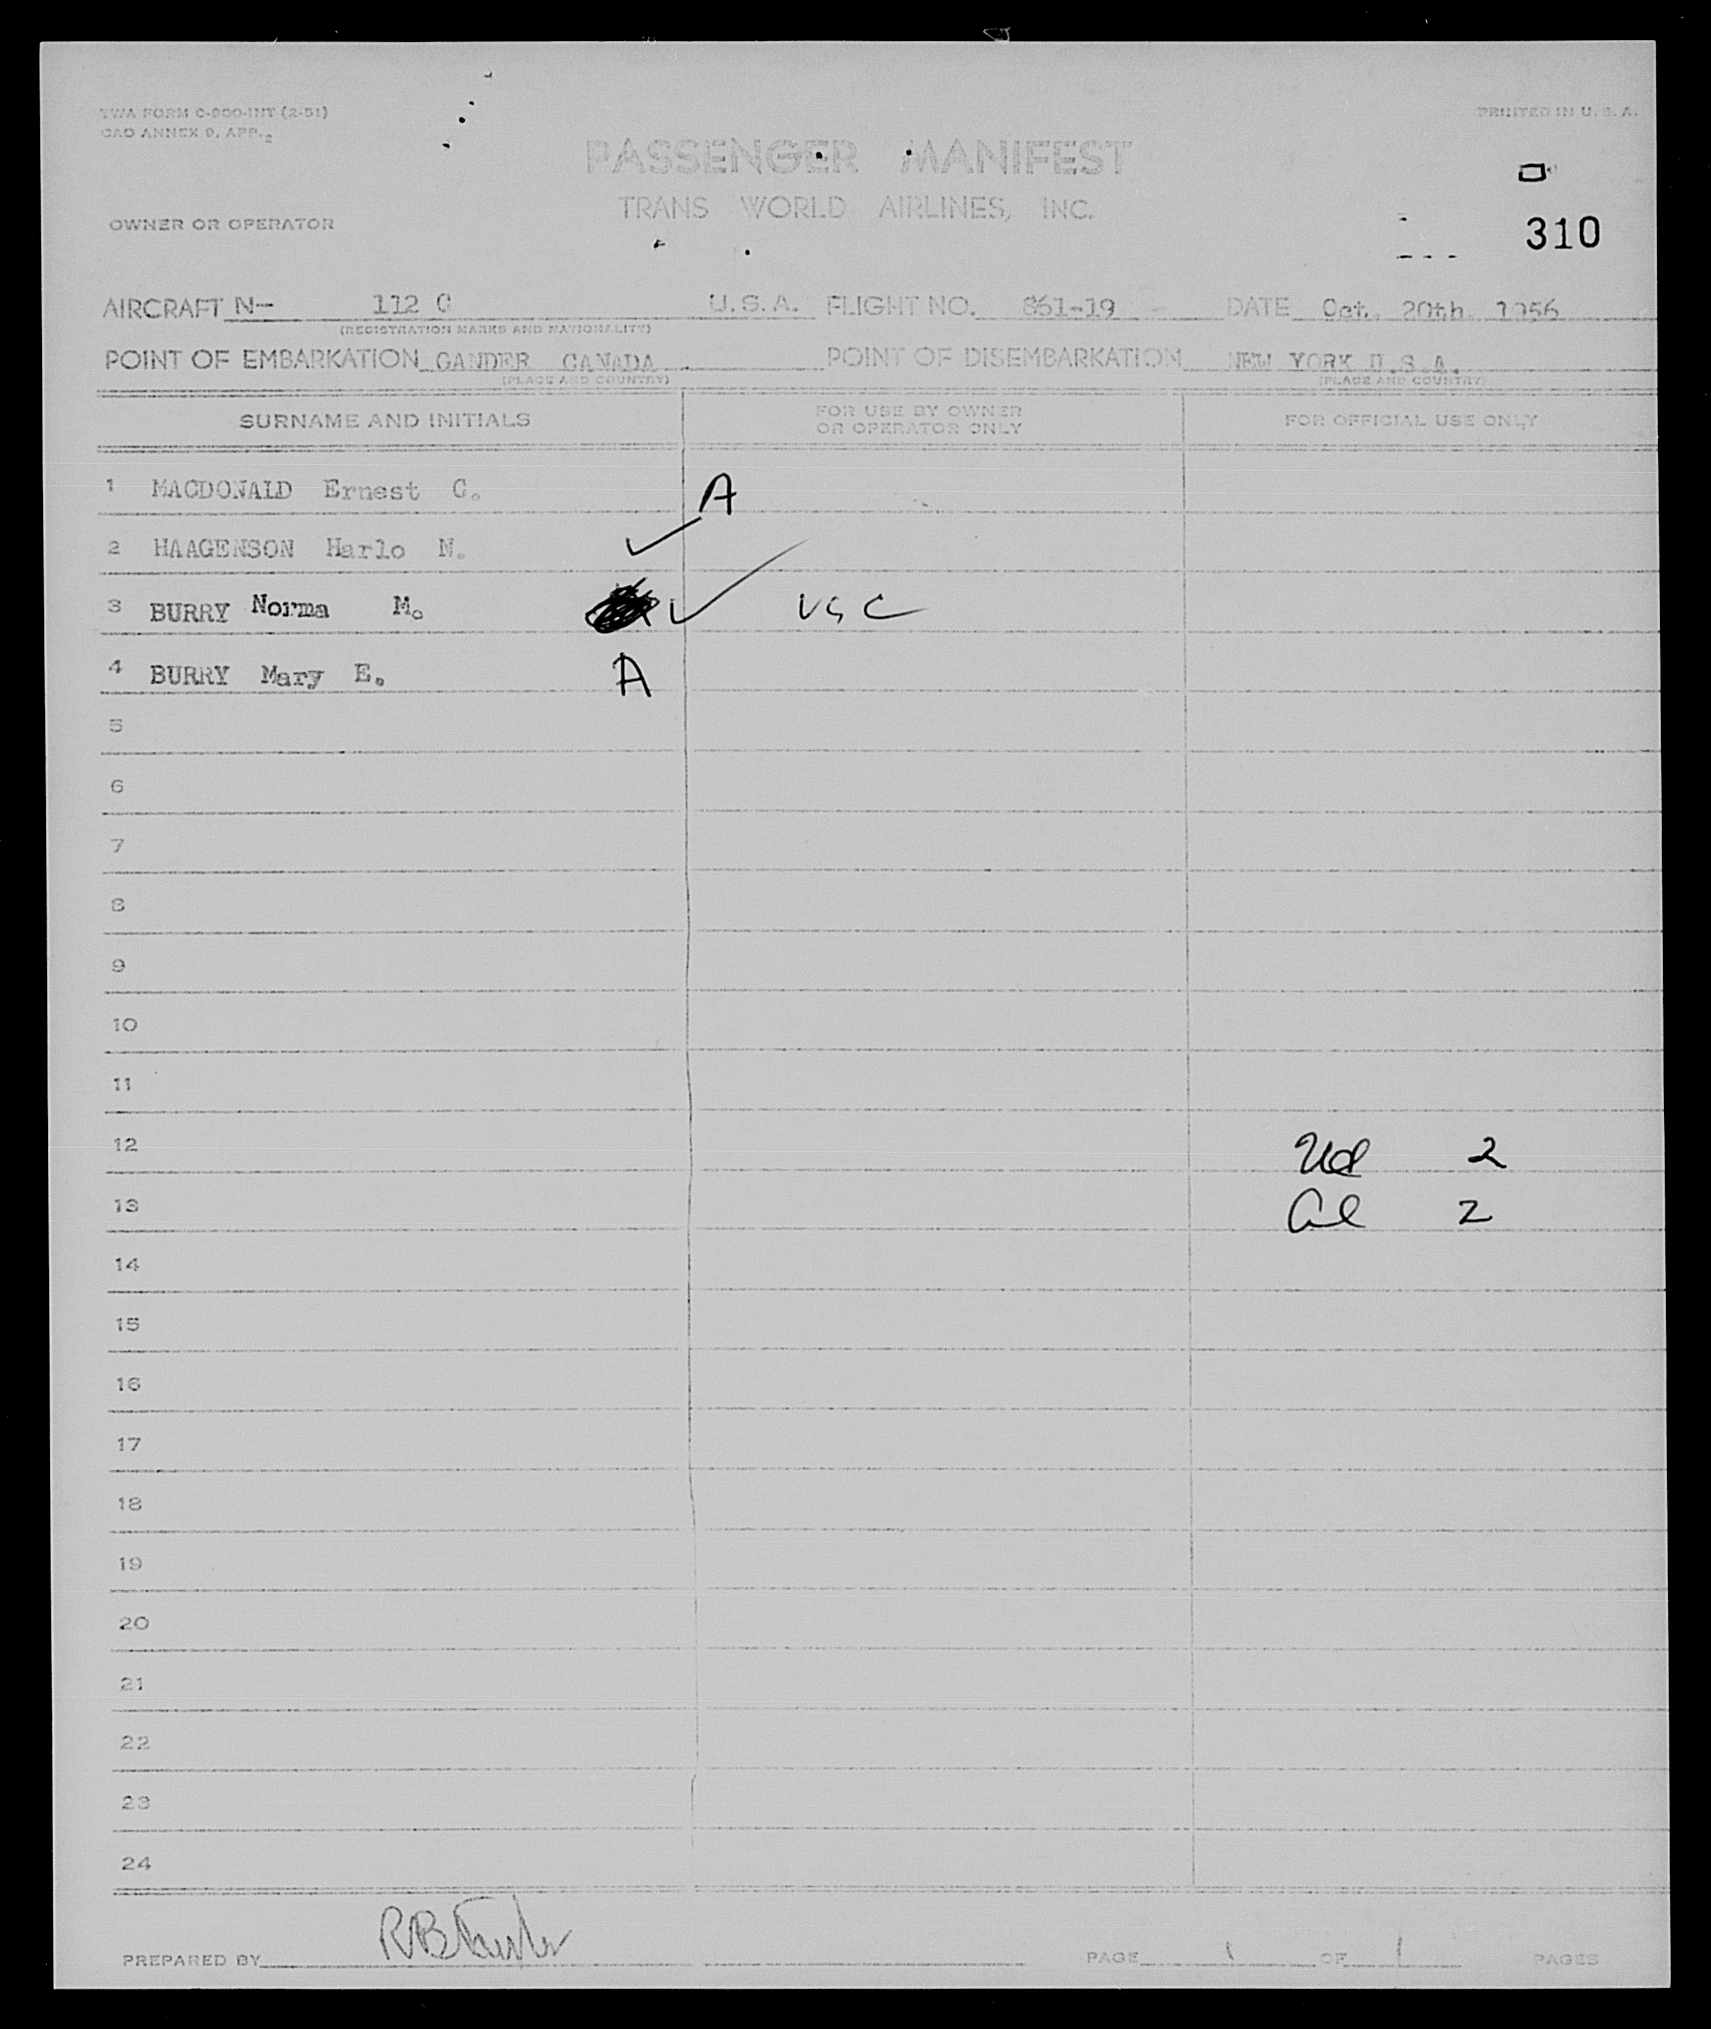 TWA FORM C-900-INT (2-51)
PRINTED IN U. S. A.
CAO ANNEX 9, APP. 2
PASSENGER MANIFEST
TRANS WORLD AIRLINES, INC.
OWNER OR OPERATOR
310
AIRCRAFT N- 112 C U.S.A. FLIGHT NO. 861-19 DATE Oct. 20th. 1956
(REGISTRATION MARKS AND NATIONALITY)
POINT OF EMBARKATION GANDER CANADA POINT OF DISEMBARKATION NEW YORK U.S.A.
(PLACE AND COUNTRY) (PLACE AND COUNTRY)
SURNAME AND INITIALS FOR USE BY OWNER OR OPERATOR ONLY FOR OFFICIAL USE ONLY
1 MACDONALD Ernest C. A
2 HAAGENSON Harlo N.
3 BURRY Norma M. USC
4 BURRY Mary E. A
5
6
7
8
9
10
11
12 2
13 2
14
15
16
17
18
19
20
21
22
23
24
PREPARED BY PAGE 1 OF 1 PAGES